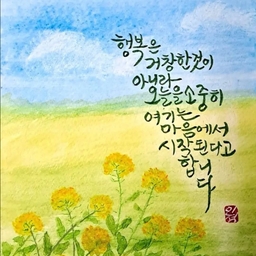 행복은
거창한것이
아니라
오늘을소중히
여기는
마음에서
시작된다고
합니
다